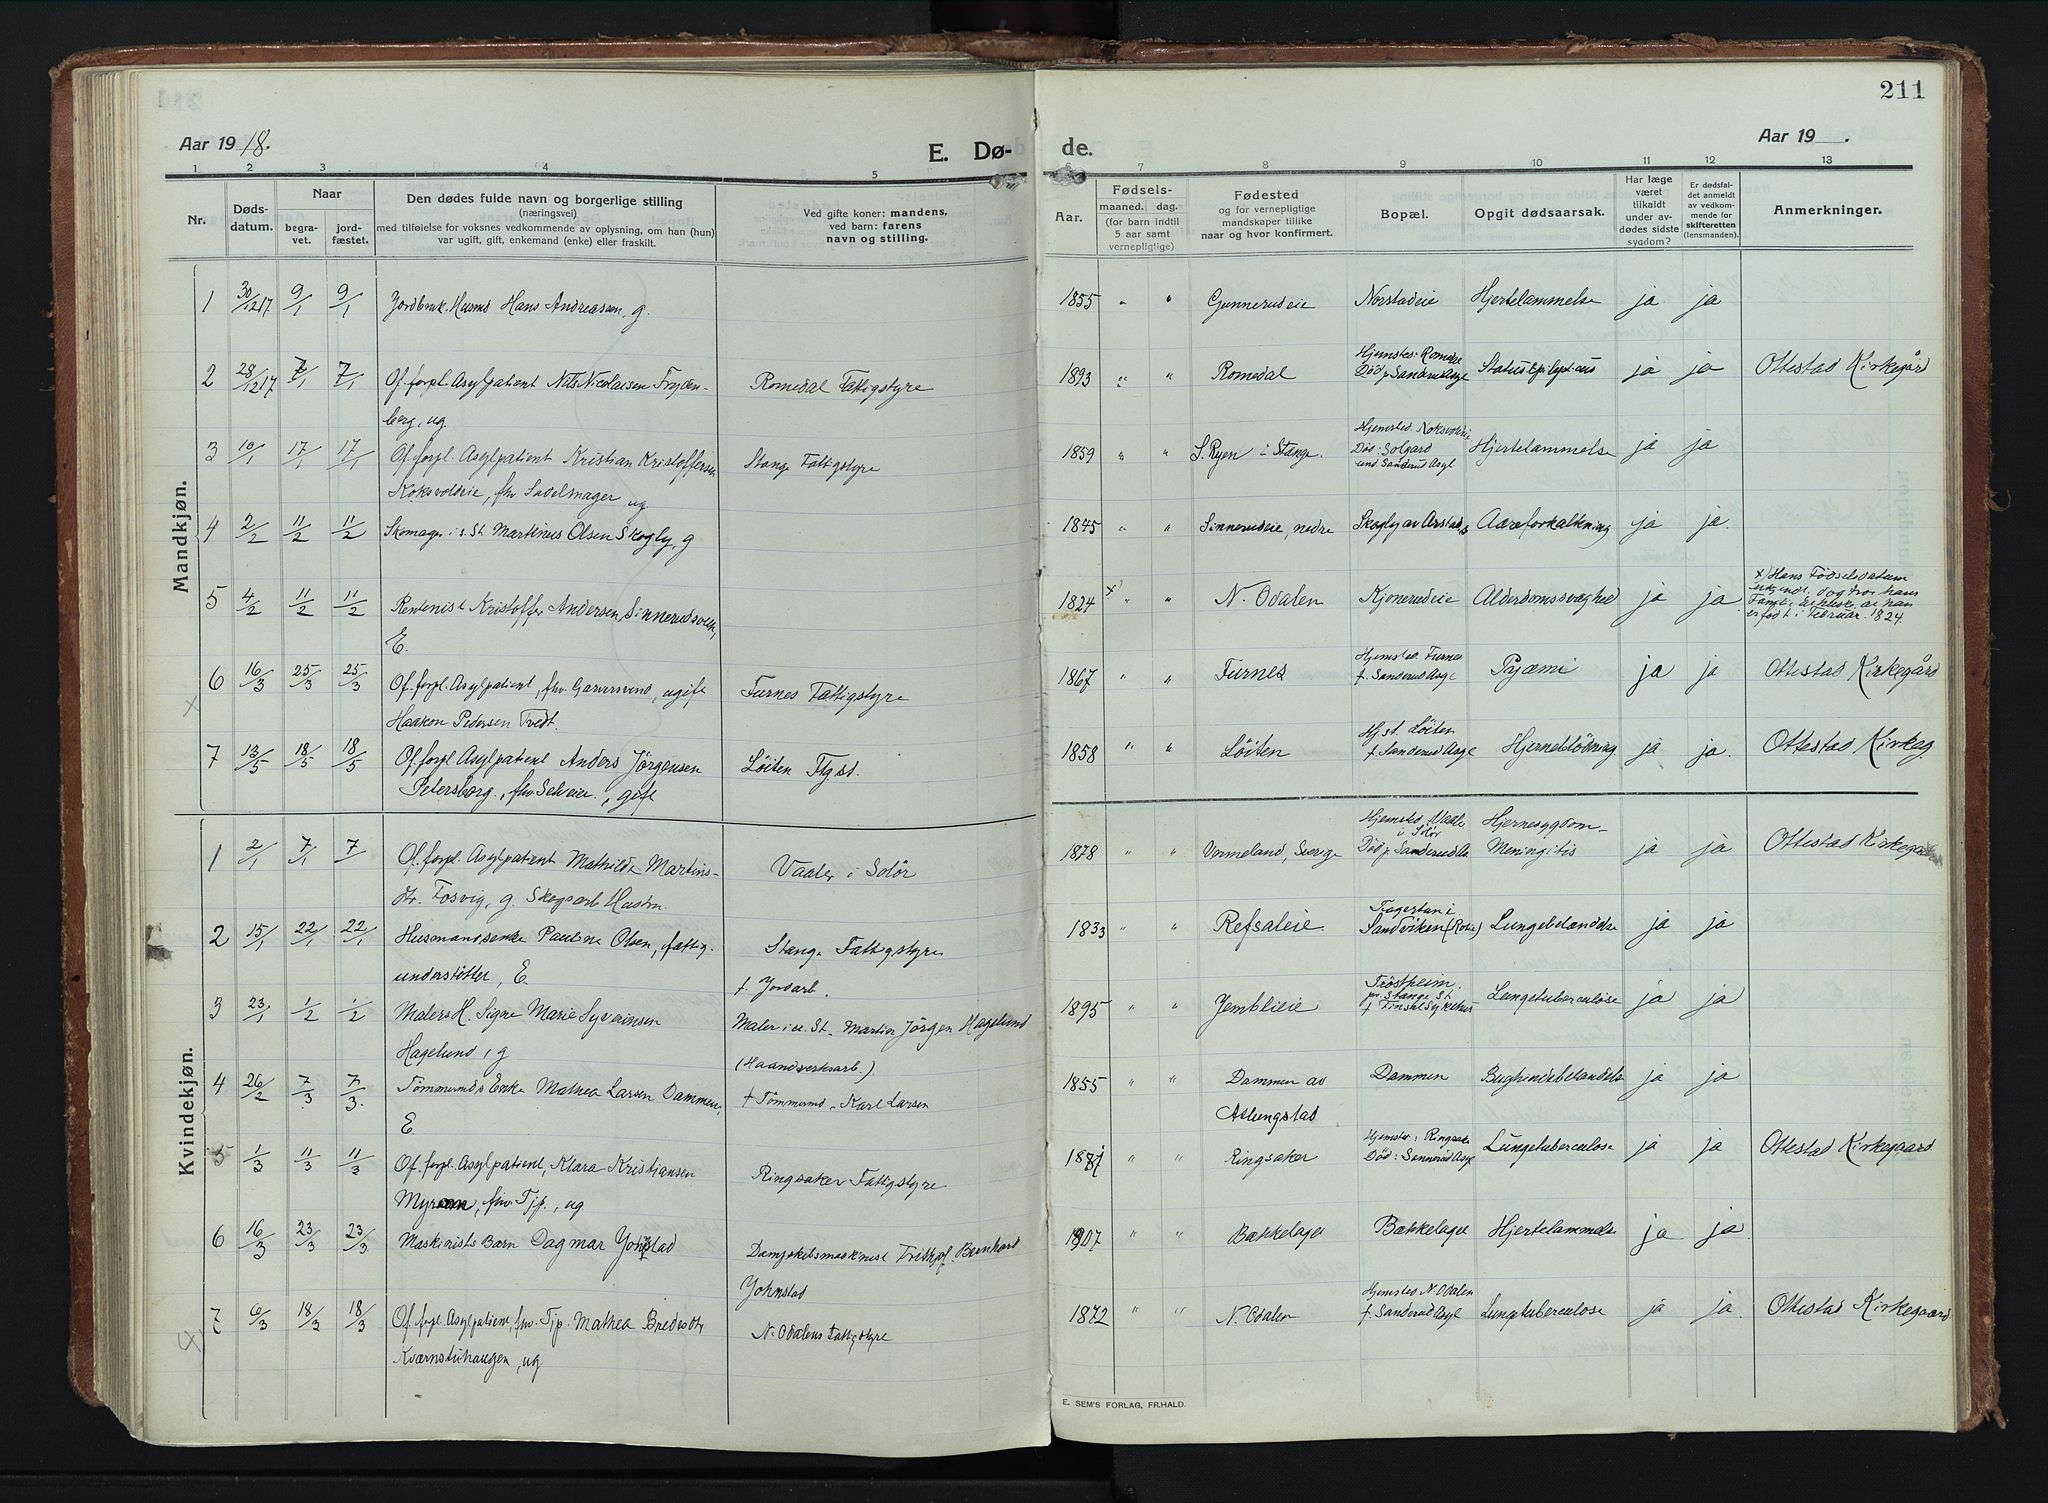 211
Aar 1918.
E. Dø-
de.
Aar 19 .
1 2 3 4 5 6 7 8 9 10 11 12 13
Nr.
Døds-
datum.
Naar
begra-
vet.
jord-
fæstet.
Den dødes fulde navn og borgerlige stilling
(næringsvei)
med tilføielse for voksnes vedkommende av oplysning, om han (hun)
var ugift, gift, enkemand (enke) eller fraskilt.
Ved gifte koner: mandens,
ved barn: farens
navn og stilling.
Aar.
Fødsels-
maaned. dag.
(for barn indtil
5 aar samt
vernepligtige).
Fødested
og for vernepligtige
mandskaper tillike
naar og hvor konfirmert.
Bopæl.
Opgit dødsaarsak.
Har læge
været
tilkaldt
under av-
dødes sidste
sygdom?
Er dødsfal-
det anmeldt
av vedkom-
mende for
skifteretten
(lensmanden).
Anmerkninger.
Mandkjøn.
1 30/12 17 9/1 9/1 Jordbruk. Husmd Hans Andreasen, g. 1855 " " Gunnerudeie Norstadeie Hjertelammelse ja ja
2 28/12 17 7/1 7/1 Of. forpl. Asylpatient Nils Nicolaisen Fryden-
berg, ug
Romedal Fattigstyre 1893 " " Romedal
Hjemsted: Romedal
Død p Sanderud Asyl
Status Epilepticus ja ja Ottestad Kirkegård
3 10/1 17/1 17/1 Of. forpl. Asylpatient Kristian Kristoffersen
Koksvoldeie, fhv Sadelmager ug
Stange Fattigstyre 1859 " " S. Ryen i Stange.
Hjemsted. Koksvoldeie
Død: Solgard
und Sanderud Asyl
Hjertelammelse ja ja
4 2/2 11/2 11/2 Skomager i s. St. Martinus Olsen Skogly, g 1845 " " Sinnerudeie, nedre Skogly av Arstad, Aareforkalkning ja ja.
5 4/2 11/2 11/2 Rentenist Kristoffer Andersen, Sinnerudsveen,
E.
1824 x) " " N. Odalen Kjonerudeie Alderdomssvaghed ja ja
x) Hans Fødselsdatum
ukjendt, dog tror hans
Familie at huske, at han
er født i Februar 1824.
6 16/3 25/3 25/3 Of. forpl. Asylpatient, fhv. Garversvend, ugift
Haakon Pedersen Tvedt.
x
Furnes Fattigstyre 1867 " " Furnes
Hjemsted. Furnes
† Sanderud Asyl
Pyæmi ja ja Ottestad Kirkegård
7 13/5 18/5 18/5 Of. forpl Asylpatient Anders Jörgensen
Petersborg, fhv Selveier., gift
Löiten Ftgst. 1858 " " Löiten
Hjst. Löiten
† Sanderud Asyl
Hjerneblödning ja ja. Ottestad Kirkeg.
Kvindekjøn.
1 2/1 7/1 7/ Of. forpl. Asylpatient Mathilde Martins-
dtr. Fosvig, g. Skogsarb Hustru
Vaaler i Solör 1878 " " Vermeland, Sverige
Hjemsted Vaaler
i Solør
Død p Sanderud As
Hjernesygdom-
Meningitis
ja ja Ottestad Kirkegaard
2 15/1 22/1 22/1 Husmandsenke Pauline Olsen, fattig-
understøttet, E.
Stange Fattigstyre
† Jordarb.
1833 " " Refsaleie
Sandviken
Lungebetændelse ja ja
3 23/1 1/2 1/2 Malers H. Signe Marie Syverinsen
Hagelund, g
Maler i s. St. Martin Jörgen Hagelund
(Haandverksarb.)
1895 " " Jemblieie
Tröstheim,
pr. Stange St.
† Tinshl. Sykehus
Lungetuberculöse ja ja
4 26/2 7/3 7/3. Tömmermds Enke Mathea Larsen Dammen,
E.
† Tömmermd. Karl Larsen 1855 " " Dammen av
Atlungstad
Dammen Bughindebetændelse ja ja
5 1/3 11/3 11/3 Of. forpl. Asylpatient, Klara Kristiansen
Myren, fhv. Tjp., ug
Ringsaker Fattigstyre 1887 " " Ringsaker
Hjemsted: Ringsaker
Død: Sannerud Asyl
Lungetuberculose ja ja Ottestad Kirkegaard
6 16/3 23/3 23/3 Maskinists Barn Dagmar Johnstad
Dampskibsmaskinist Frithjof Bernhard
Johnstad
1907 " " Bækkelaget Bækkelaget Hjertelammelse ja ja
7 6/3 18/3 18/3 Of. forpl. Asylpatient, fhv. Tjp. Mathea Bredesdtr
Kværnstuhaugen, ug
x
N. Odalens Fattigstyre 1872 " " N. Odalen
Hjemsted N. Odalen
† Sanderud Asyl
Lungetuberculose ja ja. Ottestad Kirkegaard
E. SEM'S FORLAG, FR.HALD.